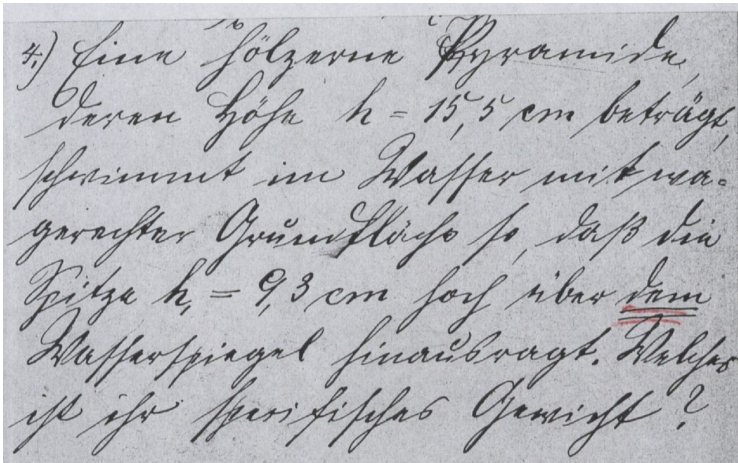 4.) Eine hölzerne Pyramide,
deren Höhe h = 15,5 cm beträgt,
schwimmt im Wasser mit wa-
gerechter Grundfläche so, daß die
Spitze h, = 9,3 cm hoch über dem
Wasserspiegel hinausragt. Welches
ist ihr spezifisches Gewicht?